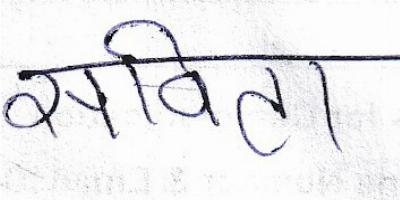 सविता